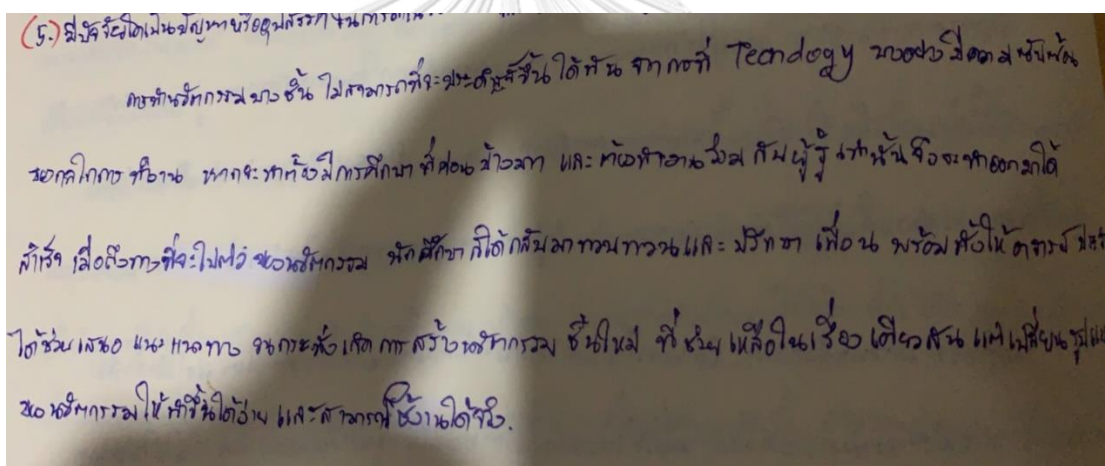 (5.) มีปัจจัยใดเป็นปัญหาหรืออุปสรรค ในการ
การทำนวัตกรรมบางชิ้น ไม่สามารถที่จะประดิษฐ์ขึ้นได้ทัน จากการที่ Teandogy บางอย่างมีความซับซ้อน
ของกลไกการทำงาน หากจะทำต้องมีการศึกษาที่ค่อนข้างมาก และต้องทำงานร่วมกับผู้รู้เท่านั้นจึงจะทำออกมาได้
สำเร็จ เมื่อถึงทางที่จะไปต่อของนวัตกรรม นักศึกษาก็ได้กลับมาทวนทวนและปรึกษาเพื่อน พร้อมทั้งให้อาจารย์
ได้ช่วยเสนอแนะแนวทาง จนกระทั่งเกิดการสร้างนวัตกรรมชิ้นใหม่ ที่ช่วยเหลือในเรื่องเดียวกัน แต่เปลี่ยน
ของนวัตกรรมให้ทำขึ้นได้ง่าย และสามารถใช้งานได้จริง.